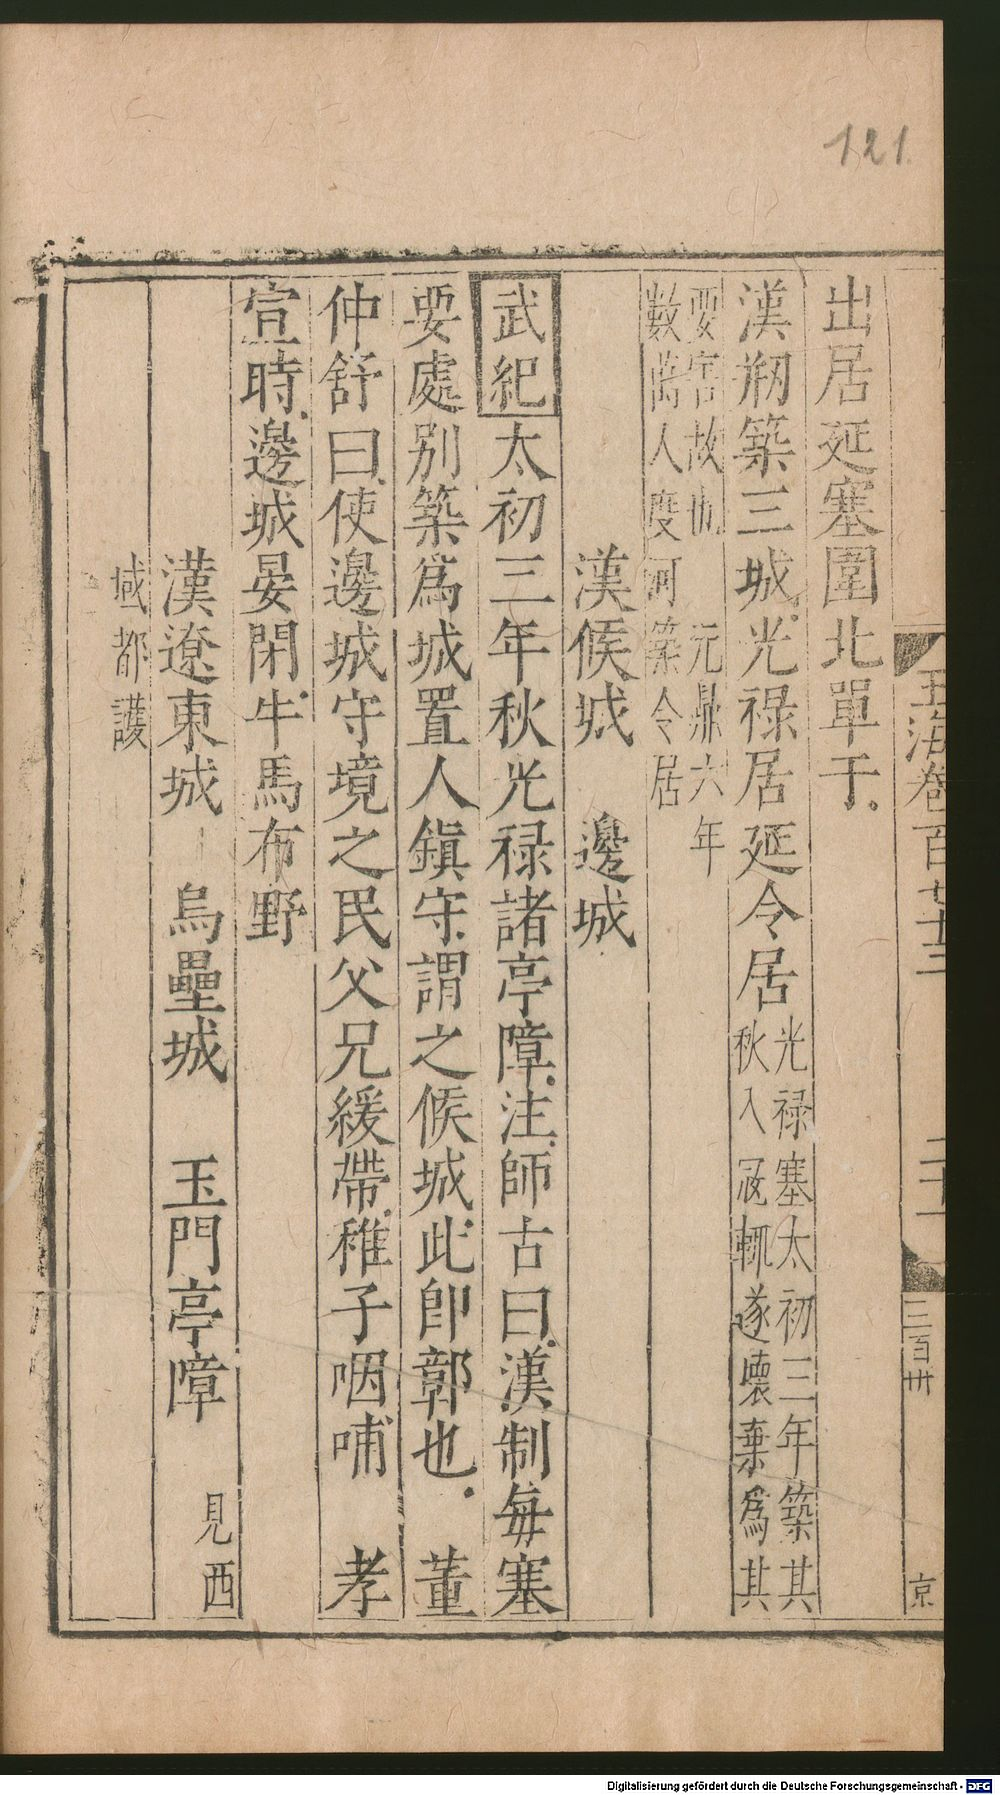 121
玉海卷百七十三
二十一
三百卅
京
出居延塞圍北單于
漢朔築三城光祿居延令居光祿塞太初三年築其
秋入寇輒遂壞棄爲其
要害故也 元鼎六年
數萬人度河築令居
漢候城 邊城
武紀太初三年秋光祿諸亭障注師古曰漢制每塞
要處別築爲城置人鎭守謂之候城此卽鄣也 董
仲舒曰使邊城守境之民父兄緩帶稚子咽哺 孝
宣時邊城晏閉牛馬布野
漢遼東城 烏壘城 玉門亭障 見西
域都護
Digitalisierung gefördert durch die Deutsche Forschungsgemeinschaft - DFG